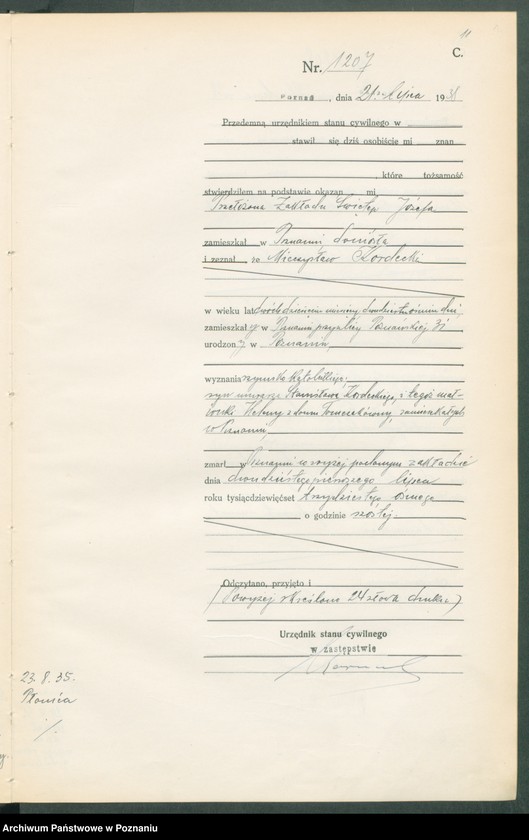 11
C.
Nr. 1207
Poznań, dnia 21. lipca 193
Przedemną urzędnikiem stanu cywilnego w
stawił się dziś osobiście mi znan
, które tożsamość
stwierdziłem na podstawie okazan mi,
Przełożona Zakładu Święteg Józefa
zamieszkał w Poznaniu, doniosła
i zeznał, że Mieczysław Kordecki
w wieku lat
zamieszkał y w Poznaniu przy ulicy 31
urodzon y w Poznaniu,
wyznania rzymsko katolickiego,
syn Stanisława Kordeckiego, i tegoż mał-
żonki Heleny z domu zamieszkałych
w Poznaniu,
zmarł w Poznaniu w wyżej podanym zakładzie
dnia dwudziestego pierwszego lipca
roku tysiącdziewięćset trzydziestego ósmego
o godzinie szóstej.
Odczytano, przyjęto i
(Powyżej skreślono 24 słowa druku)
Urzędnik stanu cywilnego
w zastępstwie
23.8.35.
Archiwum Państwowe w Poznaniu